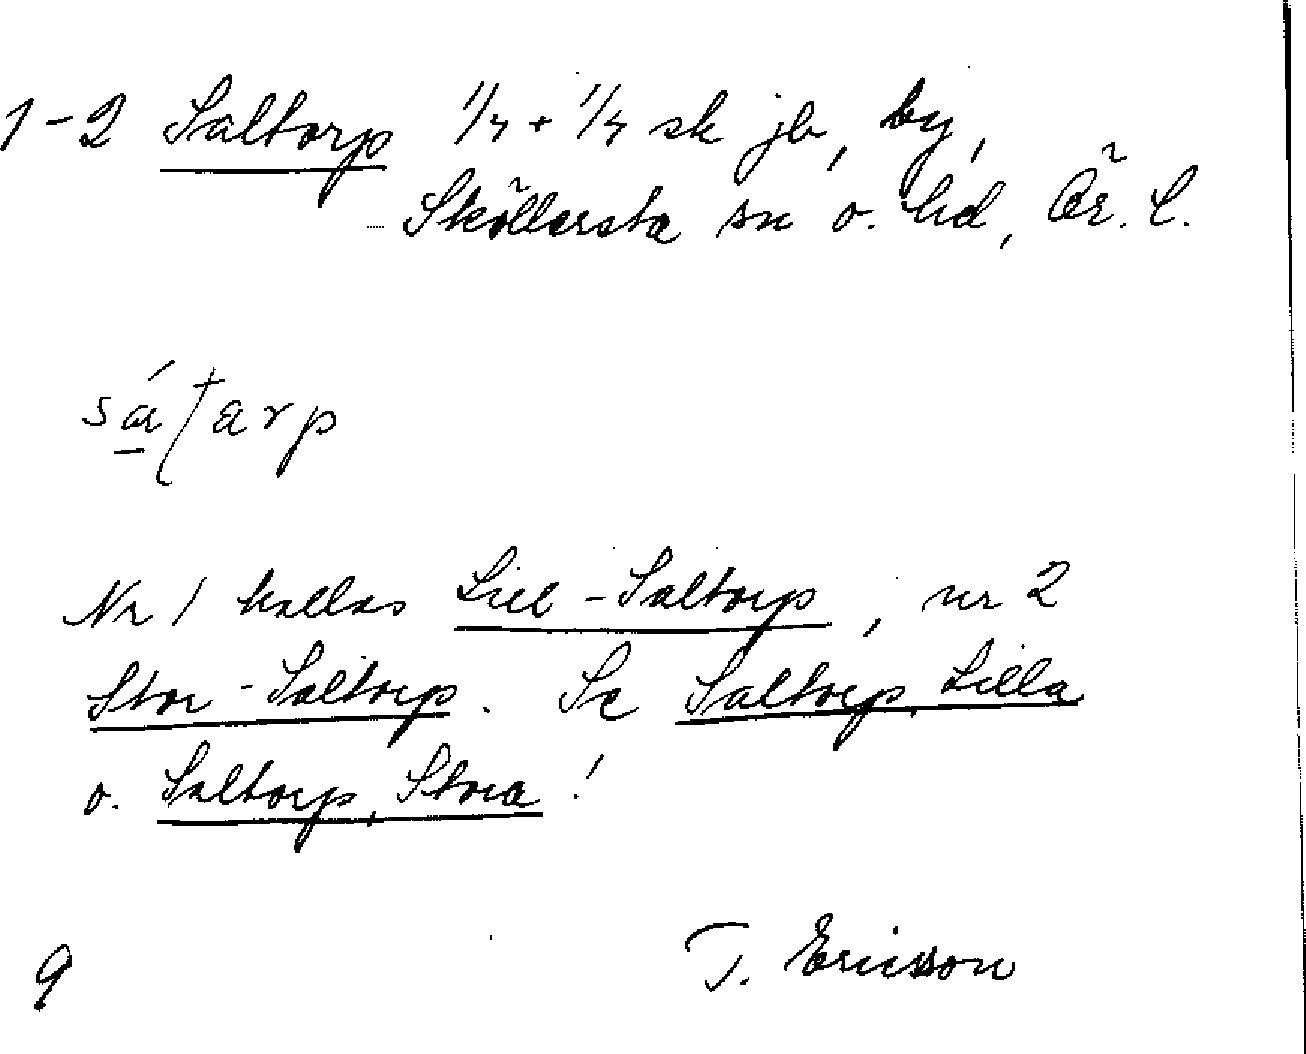 1-2 Saltorp 1/4 + 1/4 sk jb, by,
Sköllersta sn o. hd, Ör. l.
Nr 1 kallas Lill-Saltorp, nr 2
Stor-Saltorp. Se Saltorp, Lilla
o. Saltorp, Stora!
9 T. Ericsson